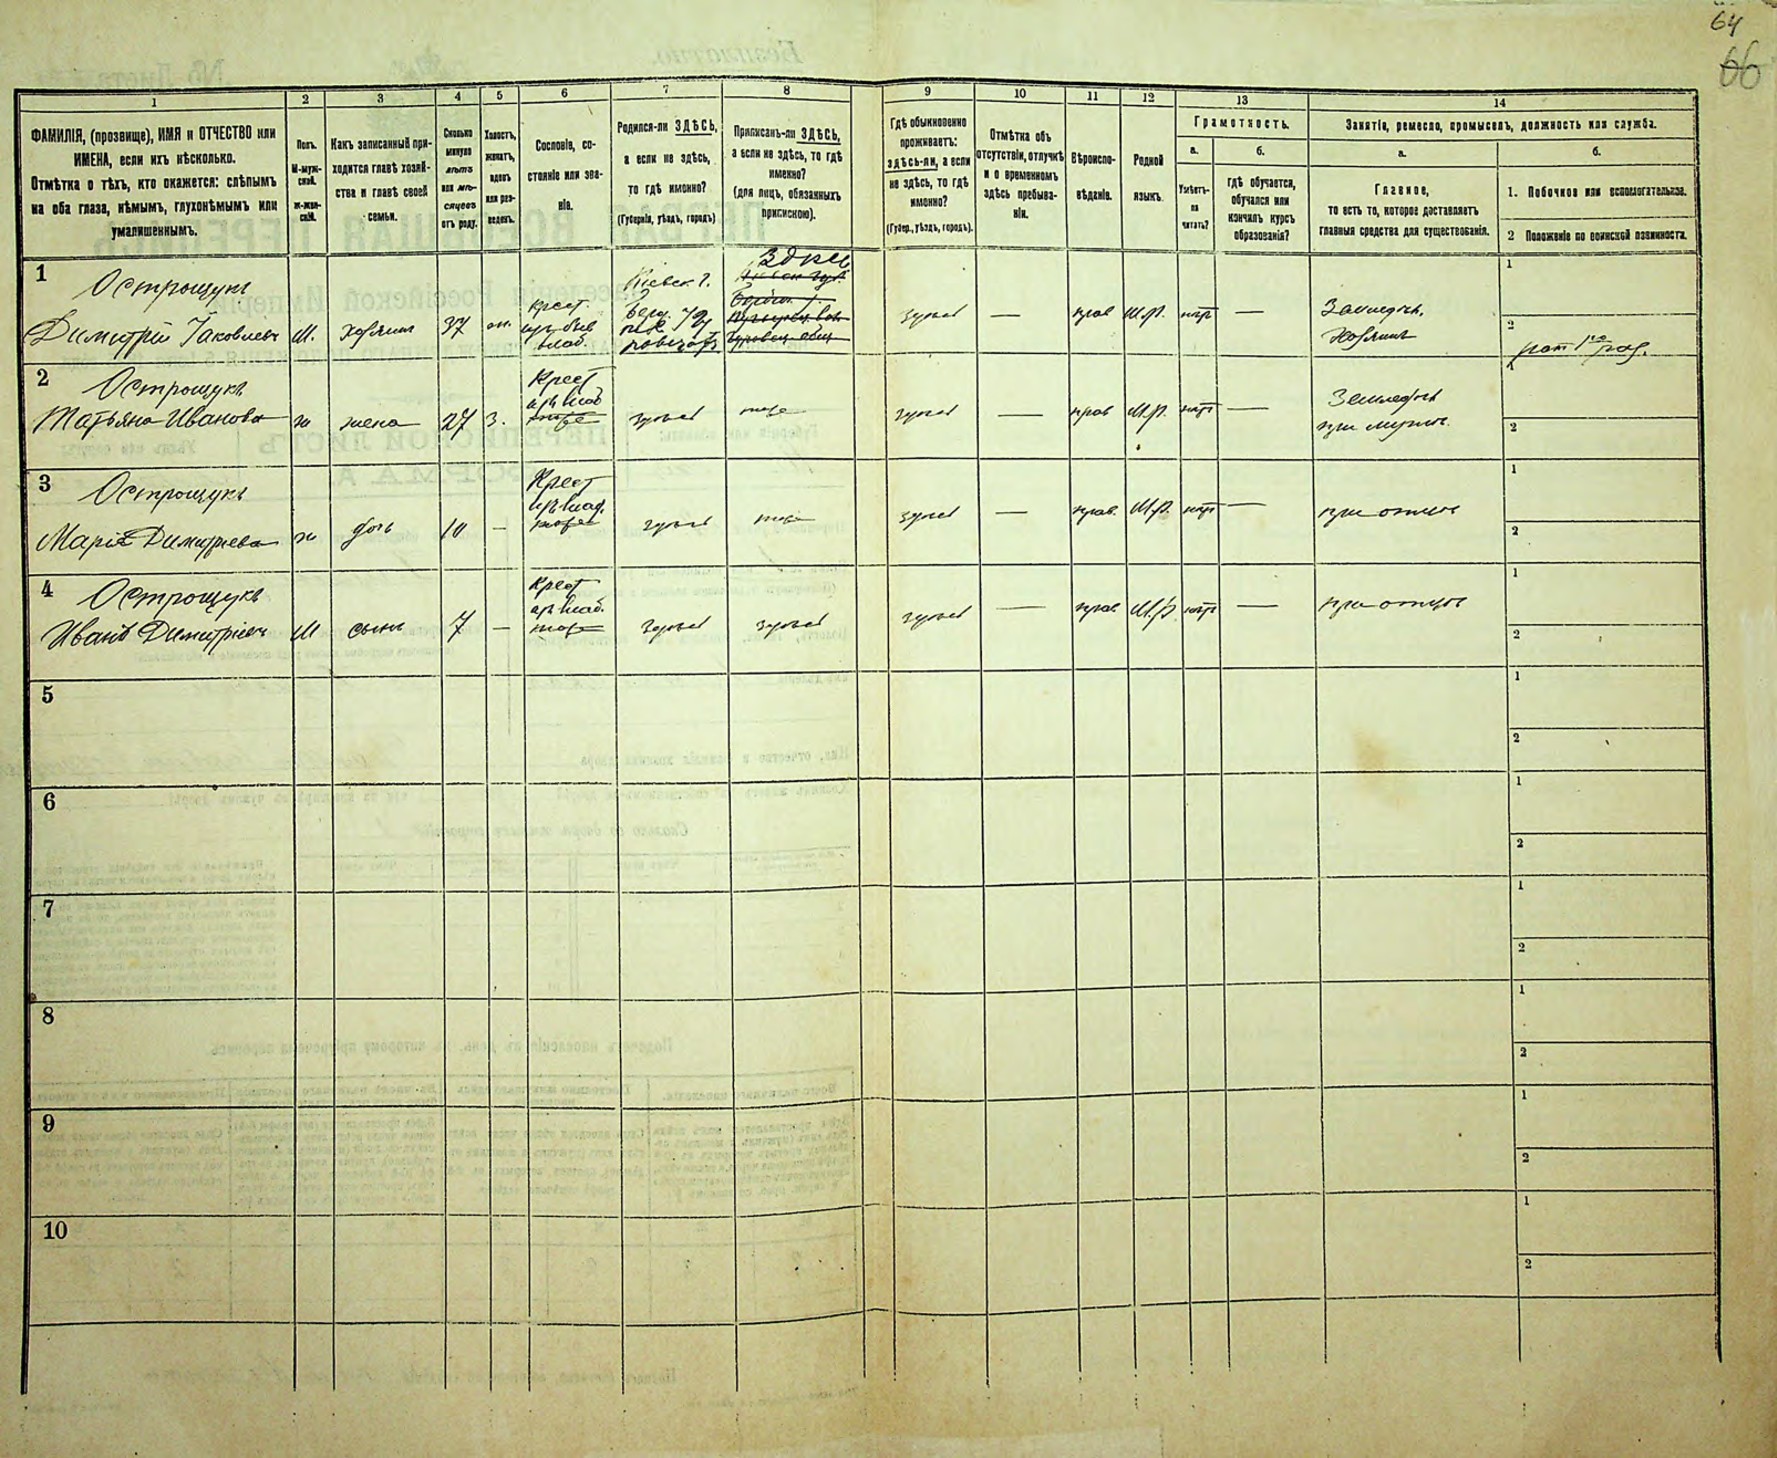 64
66
1
2
3
4
5
6
7
8
9
10
11
12
13
14
ФАМИЛІЯ, (прозвище), ИМЯ и ОТЧЕСТВО или
ИМЕНА, если ихъ нѣсколько.
Отмѣтка о тѣхъ, кто окажется: слѣпымъ
на оба глаза, нѣмымъ, глухонѣмымъ или
умалишеннымъ.
Полъ.
М-муж-
ской.
ж-жен-
скій.
Какъ записанный при-
ходится главѣ хозяй-
ства и главѣ своей
семьи.
Сколько
минуло
лѣтъ
или мѣ-
сяцевъ
отъ роду.
Холостъ,
женатъ,
вдовъ
или раз-
веденъ.
Сословіе, со-
стояніе или зва-
ніе.
Родился-ли ЗДѢСЬ,
а если не здѣсь,
то гдѣ именно?
(Губернія, уѣздъ, городъ)
Приписанъ-ли ЗДѢСЬ,
а если не здѣсь, то гдѣ
именно?
(для лицъ, обязанныхъ
припискою).
Гдѣ обыкновенно
проживаетъ:
здѣсь-ли, а если
не здѣсь, то гдѣ
именно?
(Губер., уѣздъ, городъ).
Отмѣтка объ
отсутствіи, отлучкѣ
и о временномъ
здѣсь пребыва-
ніи.
Вѣроиспо-
вѣданіе.
Родной
языкъ.
Грамотность.
а.
б.
Умѣетъ-
ли
читать?
Гдѣ обучается,
обучался или
кончилъ курсъ
образованія?
Занятіе, ремесло, промыселъ, должность или служба.
а.
б.
Главное,
то есть то, которое доставляетъ
главныя средства для существованія.
1. Побочное или вспомогательное.
2 Положеніе по воинской повинности.
1
Острощукъ
Димитрій Яковлевъ
М.
хозяинъ
37
жн.
крест.
изъ быв
влад.
Кіевск. г.
здѣсь
здѣсь
—
прав
М.р.
нѣтъ
—
Земледѣл.
Хозяинъ
1
2
2
Острощукъ
Татьяна Иванова
ж
жена
27
З.
Крест
изъ влад
тоже
здѣсь
тоже
здѣсь
—
прав
М.р.
нѣтъ
—
Земледѣл
при мужѣ.
1
2
3
Острощукъ
Марія Димитріева
ж
дочь
10
—
Крест
изъ влад.
тоже
здѣсь
тоже
здѣсь
—
прав.
М.р.
нѣтъ
—
при отцѣ
1
2
4
Острощукъ
Иванъ Димитріевъ
М
сынъ
7
—
Крест
изъ влад.
тоже
здѣсь
здѣсь
здѣсь
—
прав
М.р
нѣтъ
—
при отцѣ
1
2
5
1
2
6
1
2
7
1
2
8
1
2
9
1
2
10
1
2